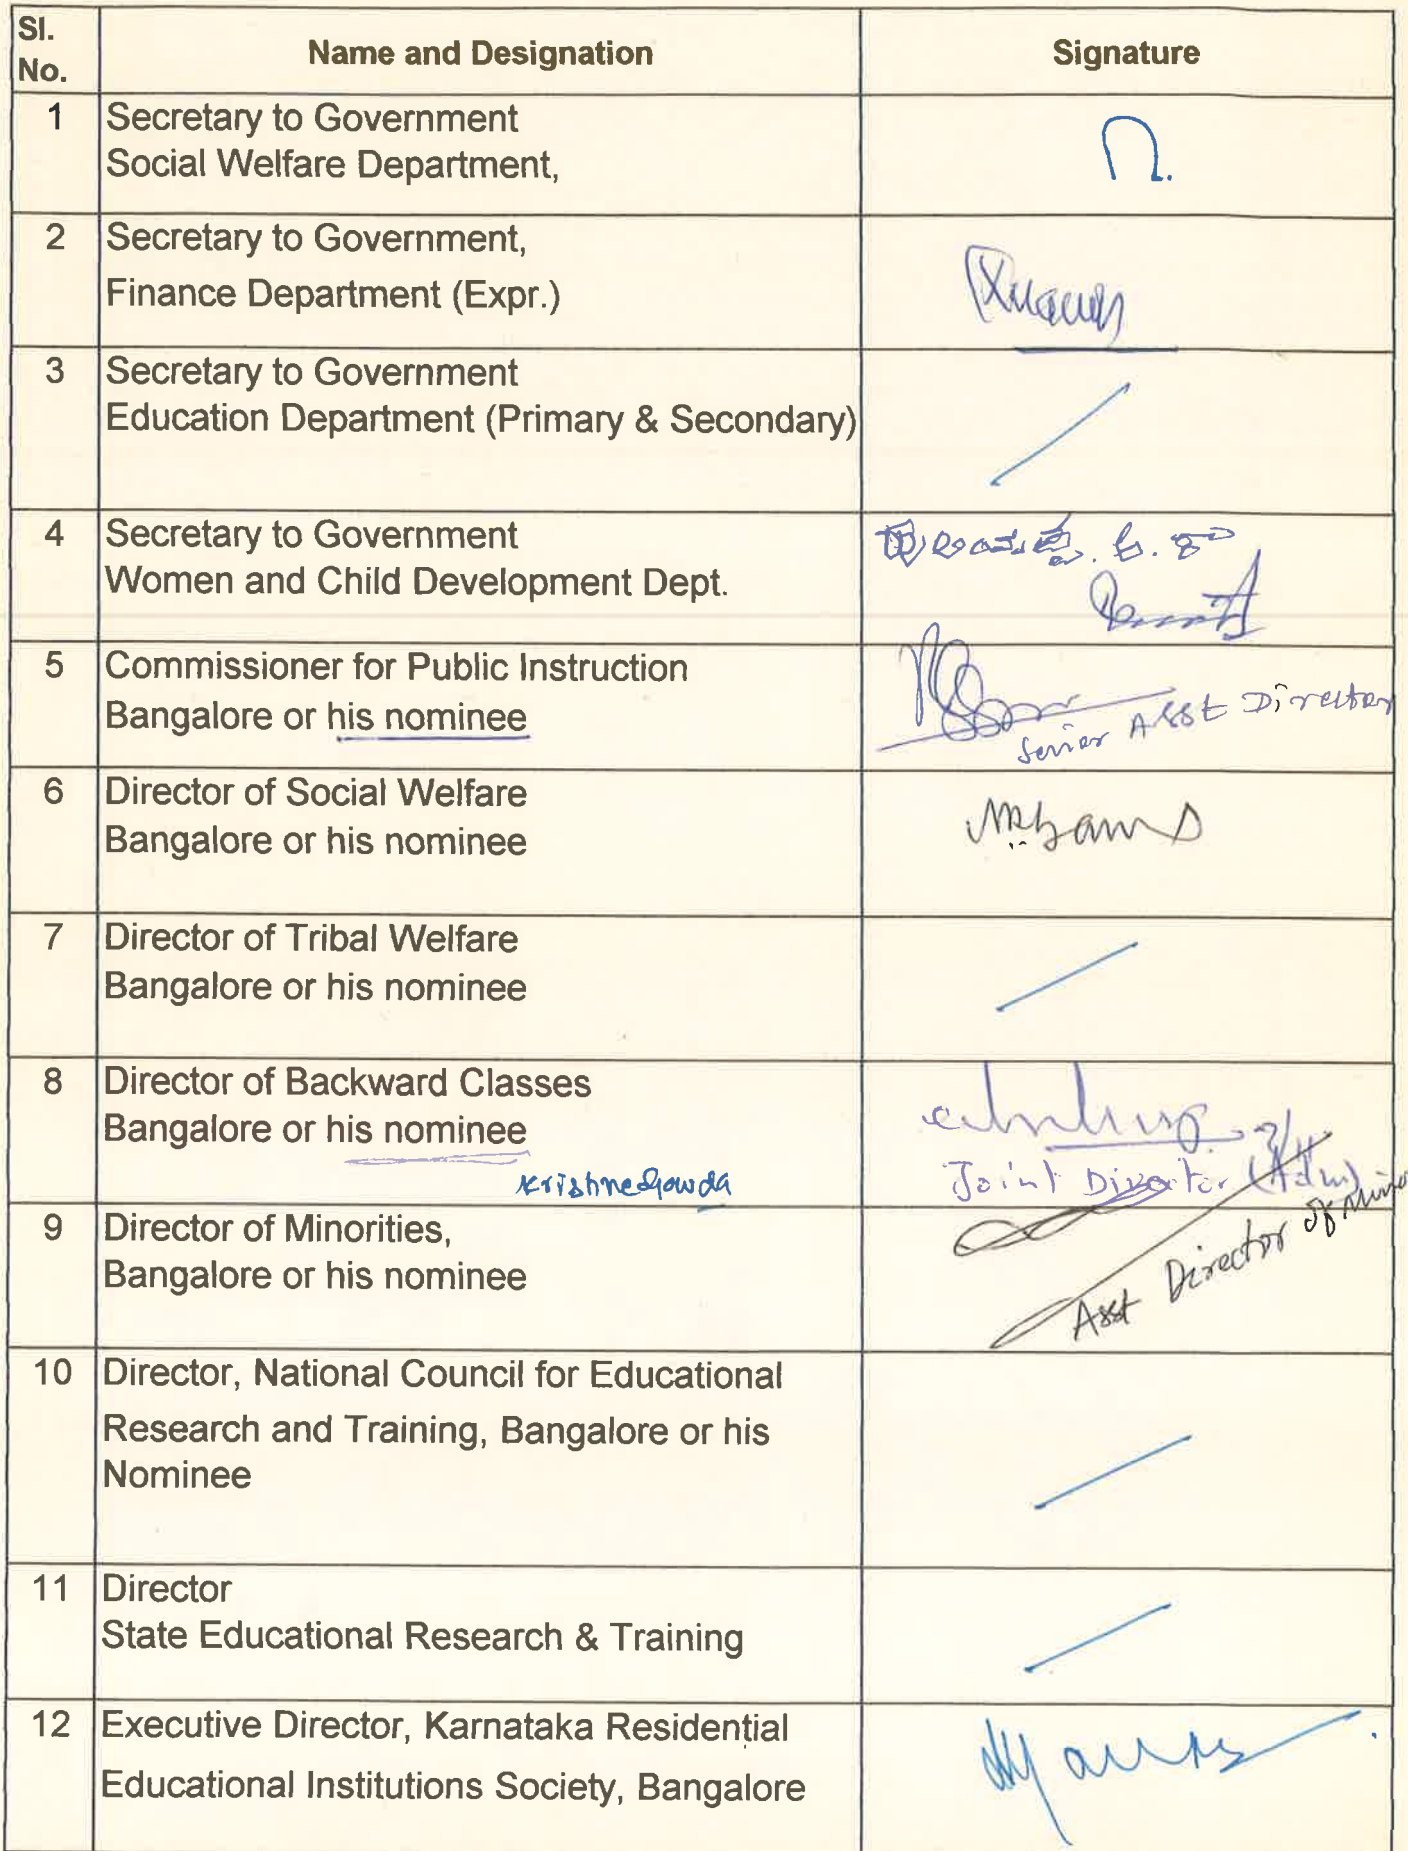 Sl.
No.
Name and Designation
Signature
1
Secretary to Government
Social Welfare Department,
2
Secretary to Government,
Finance Department (Expr.)
3
Secretary to Government
Education Department (Primary & Secondary)
4
Secretary to Government
Women and Child Development Dept.
5
Commissioner for Public Instruction
Bangalore or his nominee
Senior Asst Director
6
Director of Social Welfare
Bangalore or his nominee
7
Director of Tribal Welfare
Bangalore or his nominee
8
Director of Backward Classes
Bangalore or his nominee
KrishneGowda
Joint Director (Adm)
9
Director of Minorities,
Bangalore or his nominee
Asst Director of
10
Director, National Council for Educational
Research and Training, Bangalore or his
Nominee
11
Director
State Educational Research & Training
12
Executive Director, Karnataka Residential
Educational Institutions Society, Bangalore